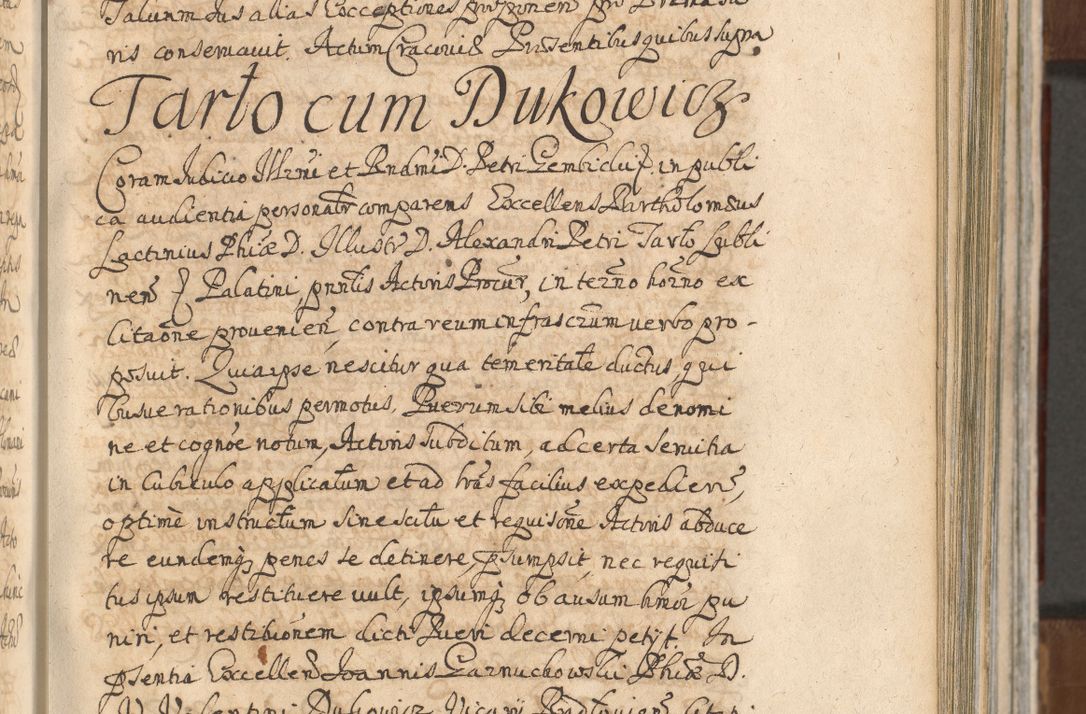 Talium Jus alias Excceptiones proponen pro
ris conservavit. Actum Cracoviæ Præsentibus quibus supra
Tarło cum Dukowicz
Coram Judicio Illrmi et Rndmi D. Petri Gembicki in publi
ca audientia personalr comparens Exccellens Bartholomæus
Lactinius Phiæ D. Illustr D. Alexandri Petri Tarło Lubli
nen Palatini, pnntis Actoris Procur, in termo horno ex
Citaone provenien, contra reum infrascrum verbo pro-
posuit. Quia ipse nescitur qua temeritate ductus, qui
busve rationibus permotus, Puerum sibi melius de nomi
ne et cognoe notum, Actoris subditum, ad certa servitia
in Cubiculo applicatum et ad lras facilius expedien,
optimè instructum sine scitu et requisone Actoris abduce
re eundemq penes se detinere, psumpsit, nec requisi
tus ipsum restituere vult, ipsumq ob ausum hmoi pu
niri, et restitionem dicti Pueri decerni petijt. In
psentia Excellen Joannis Garnuchowski Phiæ D.
Valentini Dukowicz Vicarii